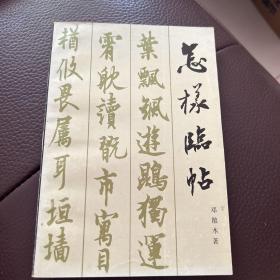 怎様臨帖
邓散木著
葉飄飖遊鵾獨運
霄耽讀翫市寓目
猶攸畏属耳垣墙